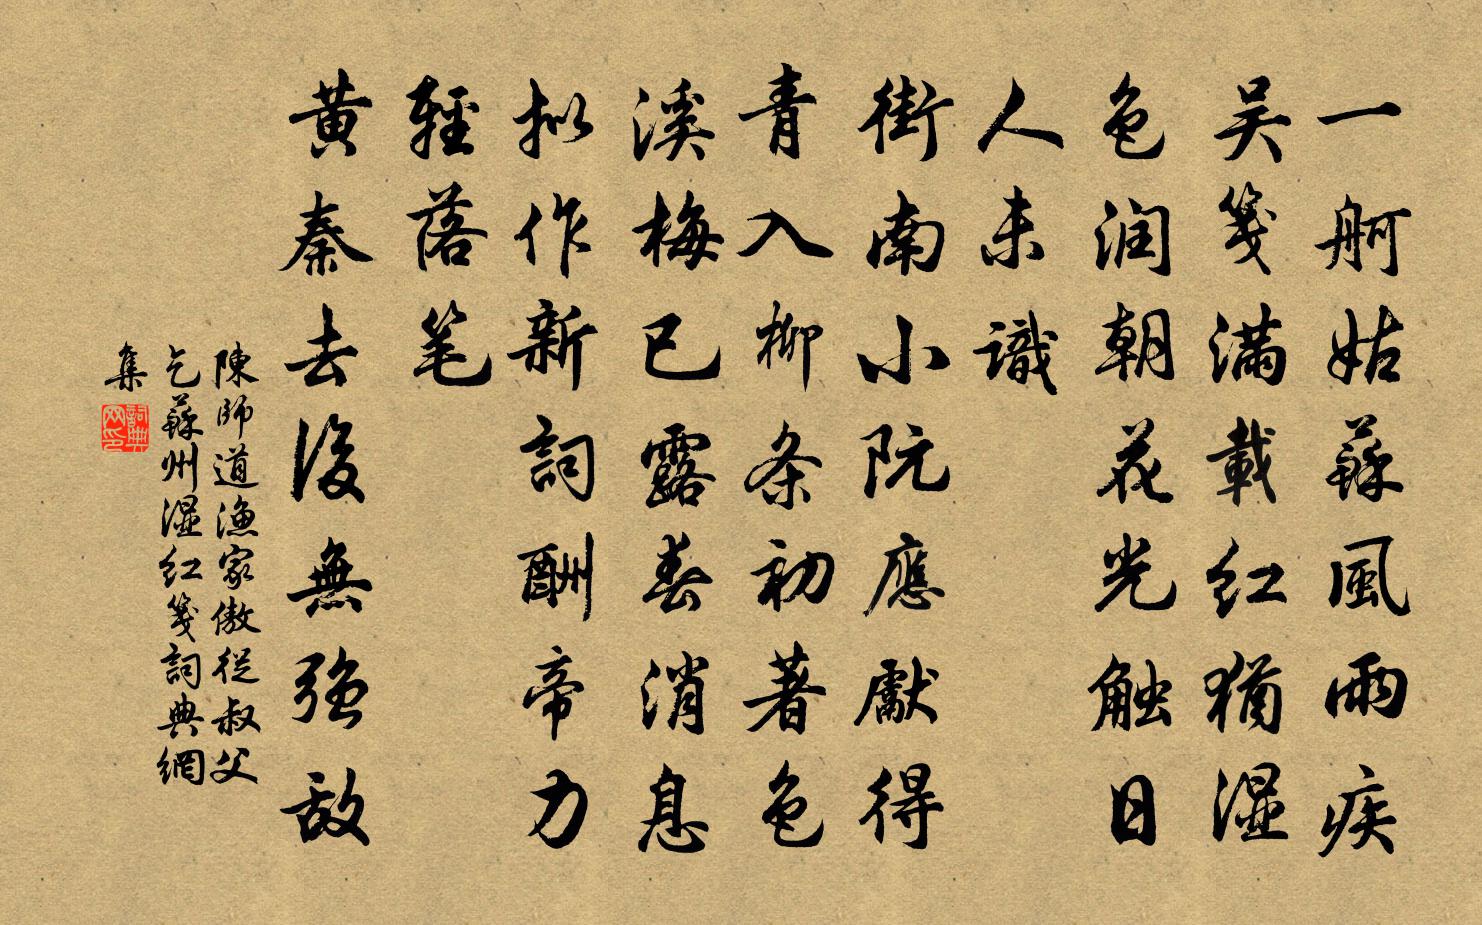 一舸姑蘇風雨疾
吴箋滿載紅猶湿
色润朝花光触日
人未識
街南小阮應獻得
青入柳条初著色
溪梅已露春消息
拟作新詞酬帝力
輕落笔
黄秦去後無强敌
陳師道漁家傲從叔父
乞蘇州濕紅箋詞典網
集
詞典网印